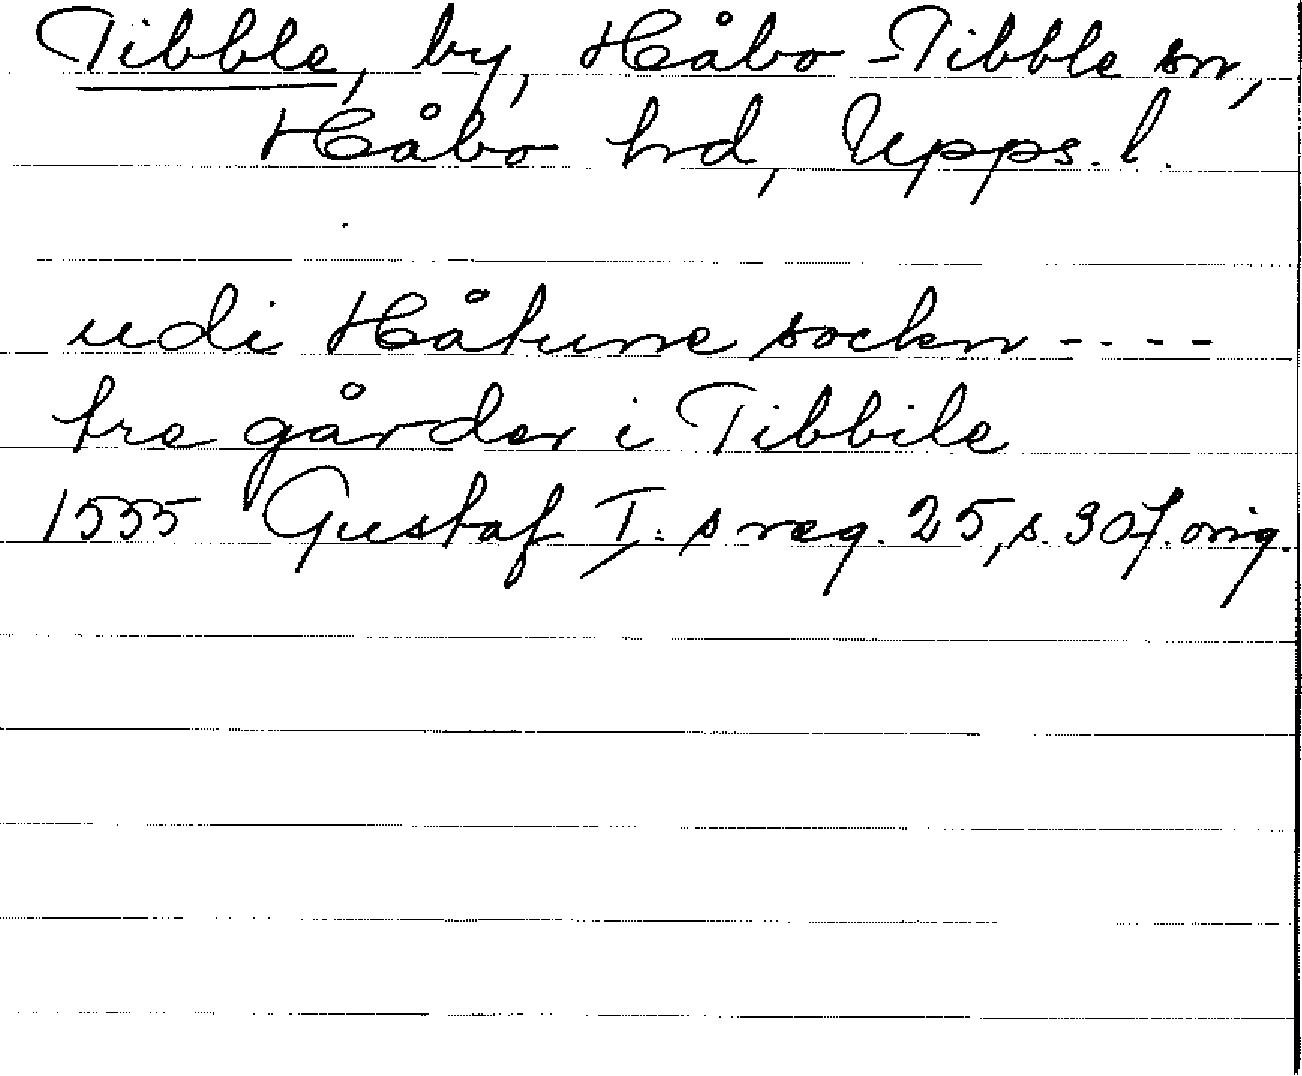 Tibble, by, Håbo-Tibble sn,
Håbo hrd, Upps. l.
udi Håtune sockn ----
tre gårder i Tibbile
1555 Gustaf I:s reg. 25, s. 307. orig.